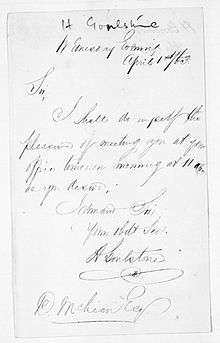 H Goulstine
Wednesday Evening
April 1st /63
Sir,
I shall do myself the
pleasure of meeting you at your
office tomorrow morning at 11 am
as you desire.
I remain Sir,
Your Obdt Ser.
H Goulstine
D McLean Esq